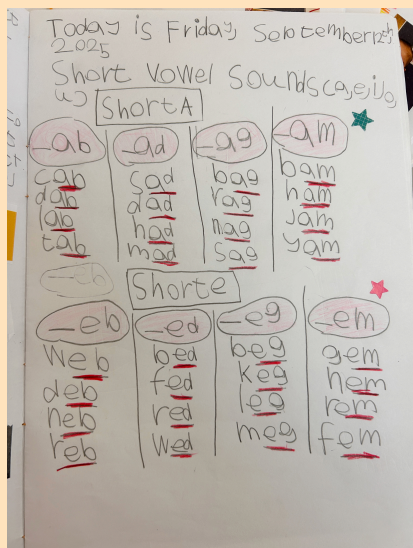 Today is Friday, September 12th,
2025
Short Vowel Sounds (a,e,i,o,
u)
Short A
_ab _ad _ag _am
cab sad bag bam
dab dad rag ham
lab had nag jam
tab mad sag yam
Short e
_eb _ed _eg _em
Web bed beg gem
deb fed keg hem
neb red leg rem
reb Wed meg fem